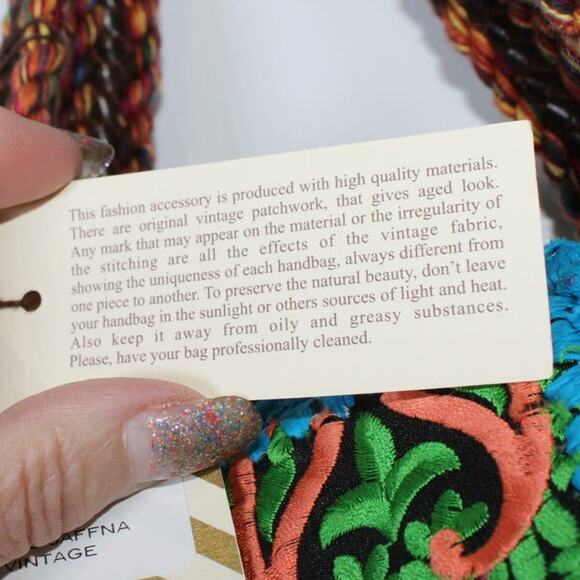 This fashion accessory is produced with high quality materials.
There are original vintage patchwork, that gives aged look.
Any mark that may appear on the material or the irregularity of
the stitching are all the effects of the vintage fabric,
showing the uniqueness of each handbag, always different from
one piece to another. To preserve the natural beauty, don't leave
your handbag in the sunlight or others sources of light and heat.
Also keep it away from oily and greasy substances.
Please, have your bag professionally cleaned.
VINTAGE